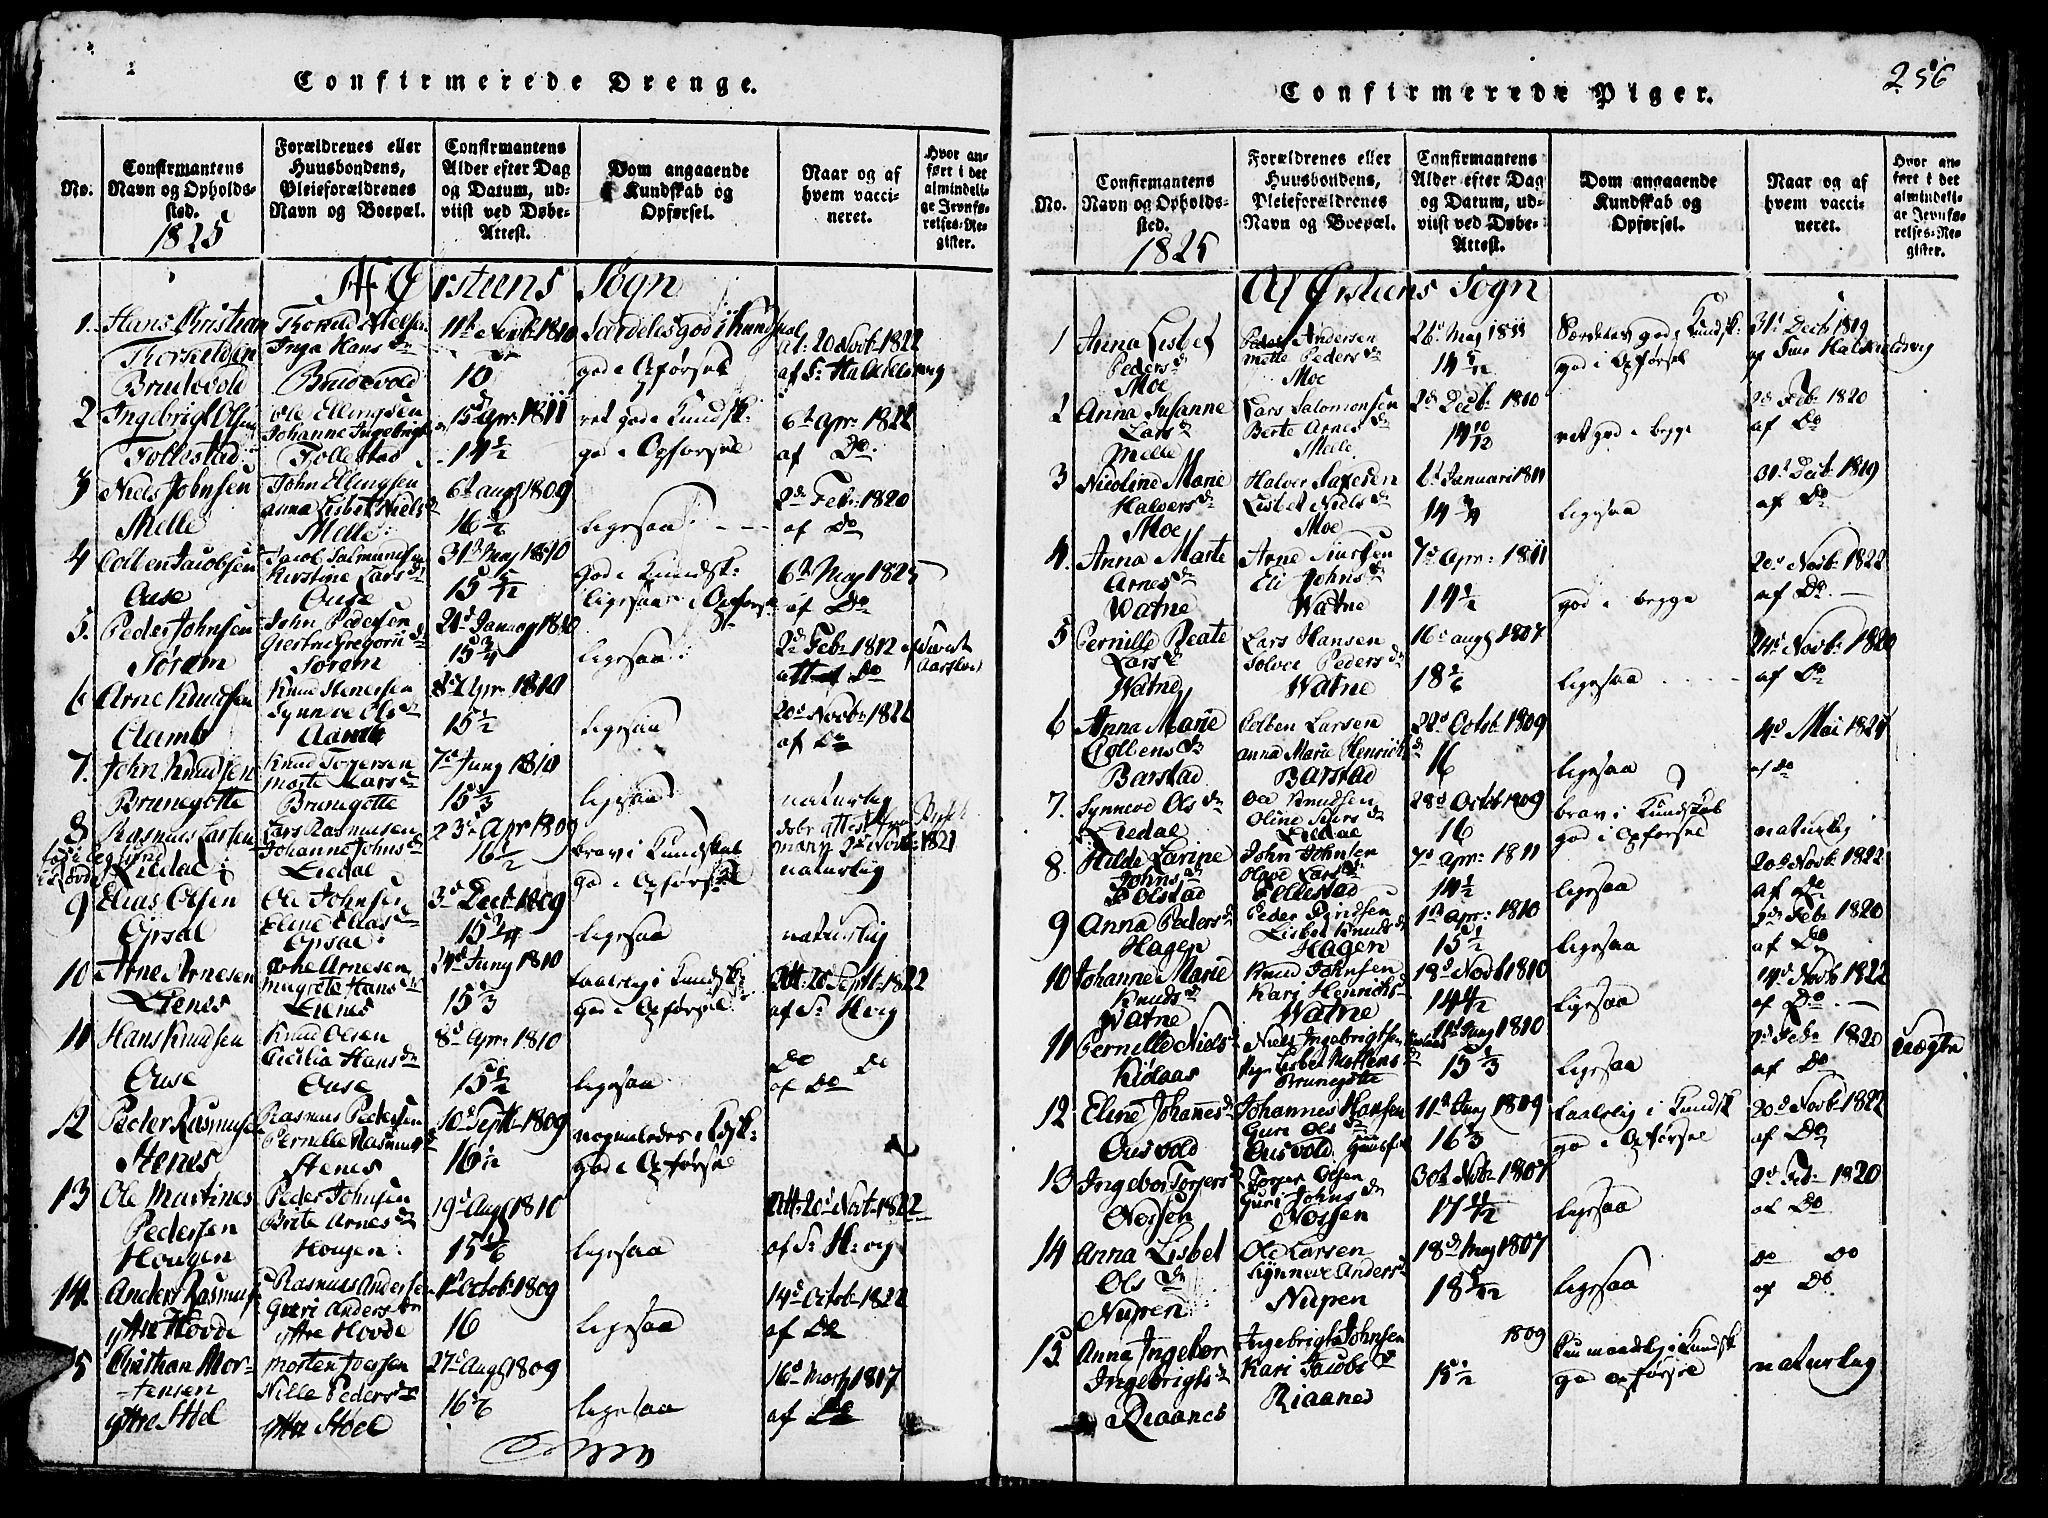 256
Confirmerede Drenge.
No.
Confirmantens Navn og Opholds-sted.
1825
Forældrenes eller Huusbondens, Pleieforældrenes Navn og Boepæl.
Confirmantens Alder efter Dag og Datum, ud-viist ved Døbe-Attest.
Dom angaaende Kundskab og Opførsel.
Naar og af hvem vacci-neret.
Hvor an-ført i det almindeli-ge Jevnfø-relses-Re-gister.
Af Ørsteens Sogn
1. Hans Christian
Thorkildsen
Brudevold
Inga Hans dr
Brudevold
11te Novb 1810
15
god i Opførsel
20 Novb 1822
2 Ingebrigt Olsen
Follestad
Ole Ellingsen
Johanne Ingebrigts
Follestad
15d Apr: 1811
14 1/2
ret god i Kundsk:
god i Opførsel
6te Apr: 1822
af Do
3 Niels Johnsen
Melle
John Ellingsen
Anna Lisbet Niels dr
Melle
6t Augt 1809
ligesaa
2d Feb: 1820
af Do
4 Colben Jacobsen
Ouse
Kirstine Lars dr
Ouse
31te May 1810
15 5/12
god i Kundsk:
ligesaa i Opførsel
6te May 1825
af Do
5. Peder Johnsen
Søram
John Pedersen
Søram
15 3/4
ligesaa
2d Feb: 1812
Do
6 Arne Knudsen
Aamb
Knud Stenersen
Synneve Ols dr
Aamb
Apr: 1810
15 1/2
ligesaa
20d Novb 1822
af Do
7. John Knudsen
Brunegotte
Knud Torgersen
Marte Lars dr
Brunegotte
7d Juny 1810
15 1/3
ligesaa
naturlig
8 Rasmus Larsen
Liedal
Lars Rasmusen
Johanne Johns dr
Liedal
23d Apr 1809
16 1/2
brav i Kundskab
god i Opførsel
naturlig
9 Elias Olsen
Opsal
Ole Johnsen
Eline Elias dr
Opsal
3d Decb 1809
15 3/4
ligesaa
naturlig
10 Arne Arnesen
Lienes
Arne Arnesen
Magrete Hans dr
Lienes
24d Juny 1810
15 1/3
taalelig i Kundsk:
god i Opførsel
Att: 20 Septb 1822
af Sr Hvig
11 Hans Knudsen
Ouse
Knud Olsen
Cicilia Hans dr
Ouse
8d Apr: 1810
15 1/2
ligesaa
Do Do
af Do
12 Peder Rasmusen
Stenes
Rasmus Pedersen
Pernille Rasmus dr
Stenes
10d Septb 1809
god i Opførsel
13 Ole Martines
Pedersen
Hougen
Peder Johnsen
Brite Arnes dr
Hougen
19d Augt 1810
ligesaa
Att: 20d Novb 1822
af Sr Hvig
14. Anders Rasmus
yttre Hovde
Rasmus Andersen
Guri Anders dr
yttre Hovde
1t Octob 1809
16
ligesaa
14d Octob 1822
af Do
15 Christian Mor-
tensen
yttre Støel
Morten Joensen
Nille Peders dr
yttre Støel
27d Augt 1809
16 1/6
ligesaa
16d Marty 1817
af Do
Confirmerede Piger.
No.
Confirmantens Navn og Opholds-sted.
1825
Forældrenes eller Huusbondens, Pleieforældrenes Navn og Boepæl.
Confirmantens Alder efter Dag og Datum, ud-viist ved Døbe-Attest.
Dom angaaende Kundskab og Opførsel.
Naar og af hvem vacci-neret.
Hvor an-ført i det almindeli-ge Jevnfø-relses-Re-gister.
Af Ørsteens Sogn
1 Anna Lisbet
Peders dr
Moe
Peder Andersen
Mette Peders dr
Moe
26d May 1811
14 5/12
Særdeles god i Kundsk:
god i Opførsel
31d Decb 1819
2 Anna Susanne
Lars dr
Melle
Lars Salomonsen
Berte Arnes dr
Melle
2d Decb 1810
14 10/12
ret god i begge
2d Feb: 1820
af Do
3 Nicoline Marie
Halvers dr
Moe
Lisbet Niels dr
Moe
Januari 1811
14 3/4
ligesaa
31d Decb 1819
af Do
4. Anna Marte
Arnes dr
Watne
Eli Johns dr
Watne
7d Apr: 1811
14 1/2
god i begge
20d Novb 1822
af Do
5 Pernille Beate
Lars dr
Watne
Lars Hansen
Solvei Peders dr
Watne
16d Augt 1807
18 1/6
ligesaa
24d Novb 1820
af Do
6 Anna Marie
Colbens dr
Barstad
Colben Larsen
Anna Maria Henrichs dr
Barstad
22d Octob 1809
16
ligesaa
af Do
7. Synneve Ols dr
Liedal
Ole Knudsen
Liedal
28d Octob 1809
16
brav i Kundskab
god i Opførsel
naturlig
8. Hilde Larine
Johns dr
Folstad
John Johnsen
Folestad
7d Apr: 1811
14 1/2
ligesaa
20d Novb 1822
af Do
9 Anna Peders dr
Hagen
Lisbet Knuds dr
Hagen
1te Apr: 1810
15 1/2
ligesaa
2d Feb 1820
af Do
10 Johanne Marie
Knuds dr
Watne
Knud Johnsen
Kari Henrichs
Watne
18d Novb 1810
ligesaa
14d Novb 1822
af Do
11 Pernille Niels dr
Kidaas
Niels Ingebrigtsen
Lisbet Mortens
Brunegotte
Juny 1810
15 1/3
ligesaa
2d Feb: 1820
af Do
uægte
12 Eline Johannes dr
Ousvold
Johannes Hansen
Guri Ols dr
Ousvold
11d Juny 1809
16 1/3
taalelig i Kundsk
god i Opførsel
20d Novb 1822
af Do
13 Ingebor Torgers dr
Nossen
Torger Olsen
Guri Johns dr
Nossen
30t Novb 1807
17 11/12
ligesaa
2d Feb: 1820
af Do
14 Anna Lisbet
Ols dr
Nupen
Ole Larsen
Synneve Anders dr
Nupen
18d May 1807
18 5/12
ligesaa
Do Do
af Do
15 Anna Ingebor
Ingebrigts dr
Riaanes
Ingebrigt Johnsen
Kari Jacobs dr
Riaanes
1809
15 1/2
god Opførsel
naturlig